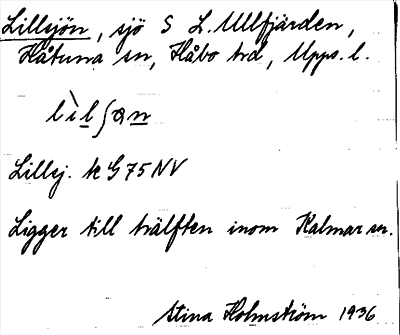 Lillsjön, sjö S L. Ullfjärden,
Håtuna sn, Håbo hrd, Upps. l.
lìlʃan
Lillsj. k G 75 NV
Ligger till hälften inom Kalmar sn.
Stina Holmström 1936